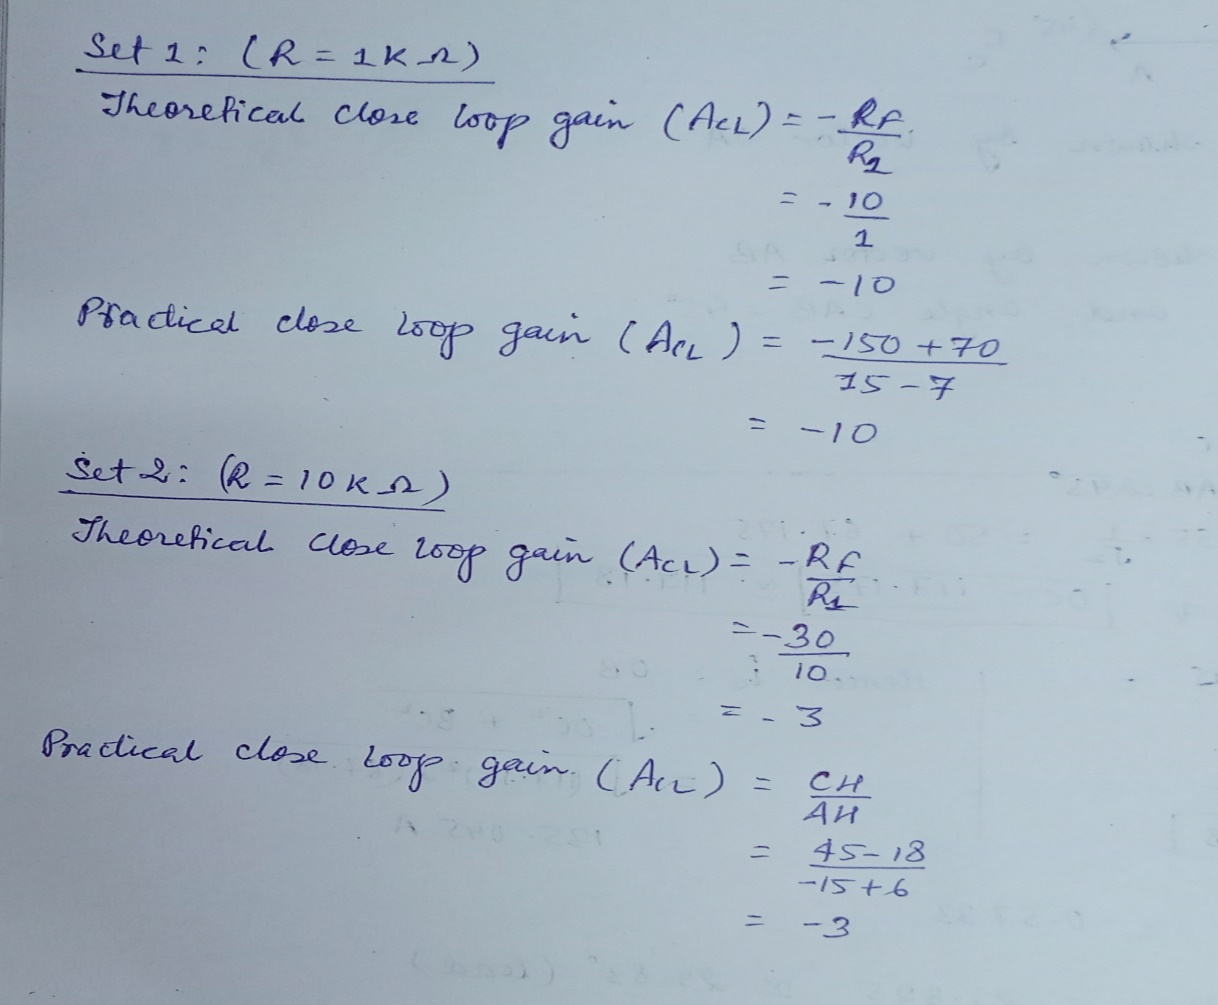 Set 1: (R = 1KΩ)
Theoretical close loop gain (ACL) = - RF/R1
= - 10/1
= -10
Practical close loop gain (ACL) = -150 + 70/15 - 7
= -10
Set 2: (R = 10KΩ)
Theoretical close loop gain (ACL) = - RF/R1
= - 30/10
= - 3
Practical close loop gain (ACL) = CH/AH
= 45 - 18/-15 + 6
= -3